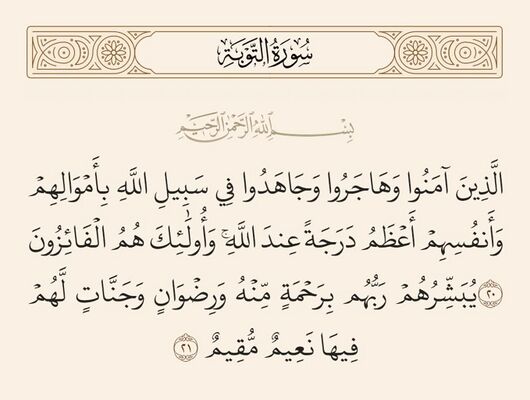 سُورَةُ التَّوْبَةِ
بِسْمِ اللَّهِ الرَّحْمَٰنِ الرَّحِيمِ
الَّذِينَ آمَنُوا وَهَاجَرُوا وَجَاهَدُوا فِي سَبِيلِ اللَّهِ بِأَمْوَالِهِمْ
وَأَنفُسِهِمْ أَعْظَمُ دَرَجَةً عِندَ اللَّهِ ۚ وَأُولَٰئِكَ هُمُ الْفَائِزُونَ
٢٠ يُبَشِّرُهُمْ رَبُّهُم بِرَحْمَةٍ مِّنْهُ وَرِضْوَانٍ وَجَنَّاتٍ لَّهُمْ
فِيهَا نَعِيمٌ مُّقِيمٌ ٢١